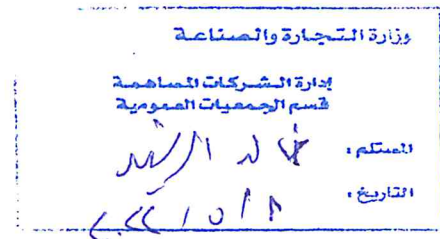 وزارة التجارة والصناعة
إدارة الشركات المساهمة
قسم الجمعيات العمومية
المستلم : خالد الرشيد
التاريخ :